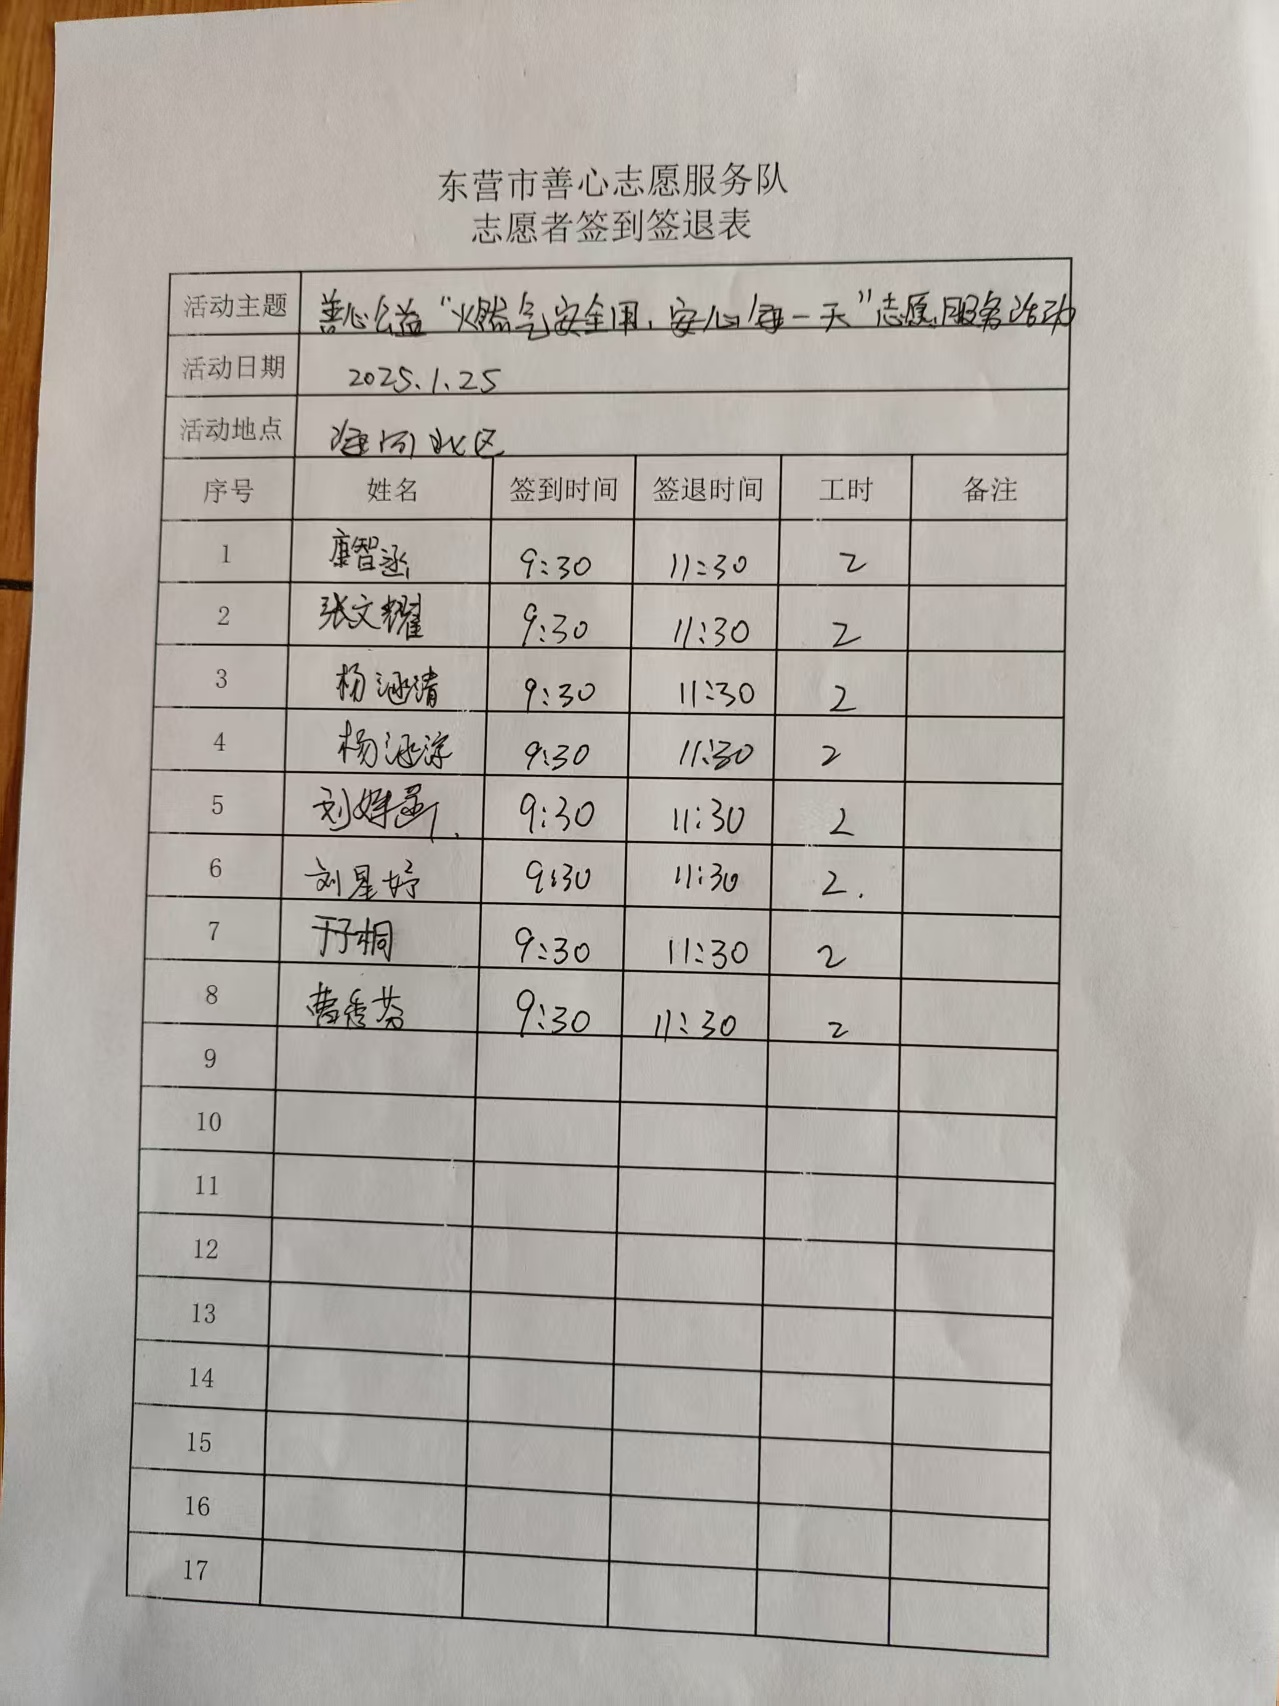 东营市善心志愿服务队
志愿者签到签退表
活动主题 善心公益“燃气安全用,安心每一天”志愿服务活动
活动日期 2025.1.25
活动地点 海河北区
序号 姓名 签到时间 签退时间 工时 备注
1 康智涵 9:30 11:30 2
2 张文耀 9:30 11:30 2
3 杨涵清 9:30 11:30 2
4 杨涵淳 9:30 11:30 2
5 刘 9:30 11:30 2
6 刘星妤 9:30 11:30 2.
7 于子桐 9:30 11:30 2
8 曹秀芬 9:30 11:30 2
9
10
11
12
13
14
15
16
17